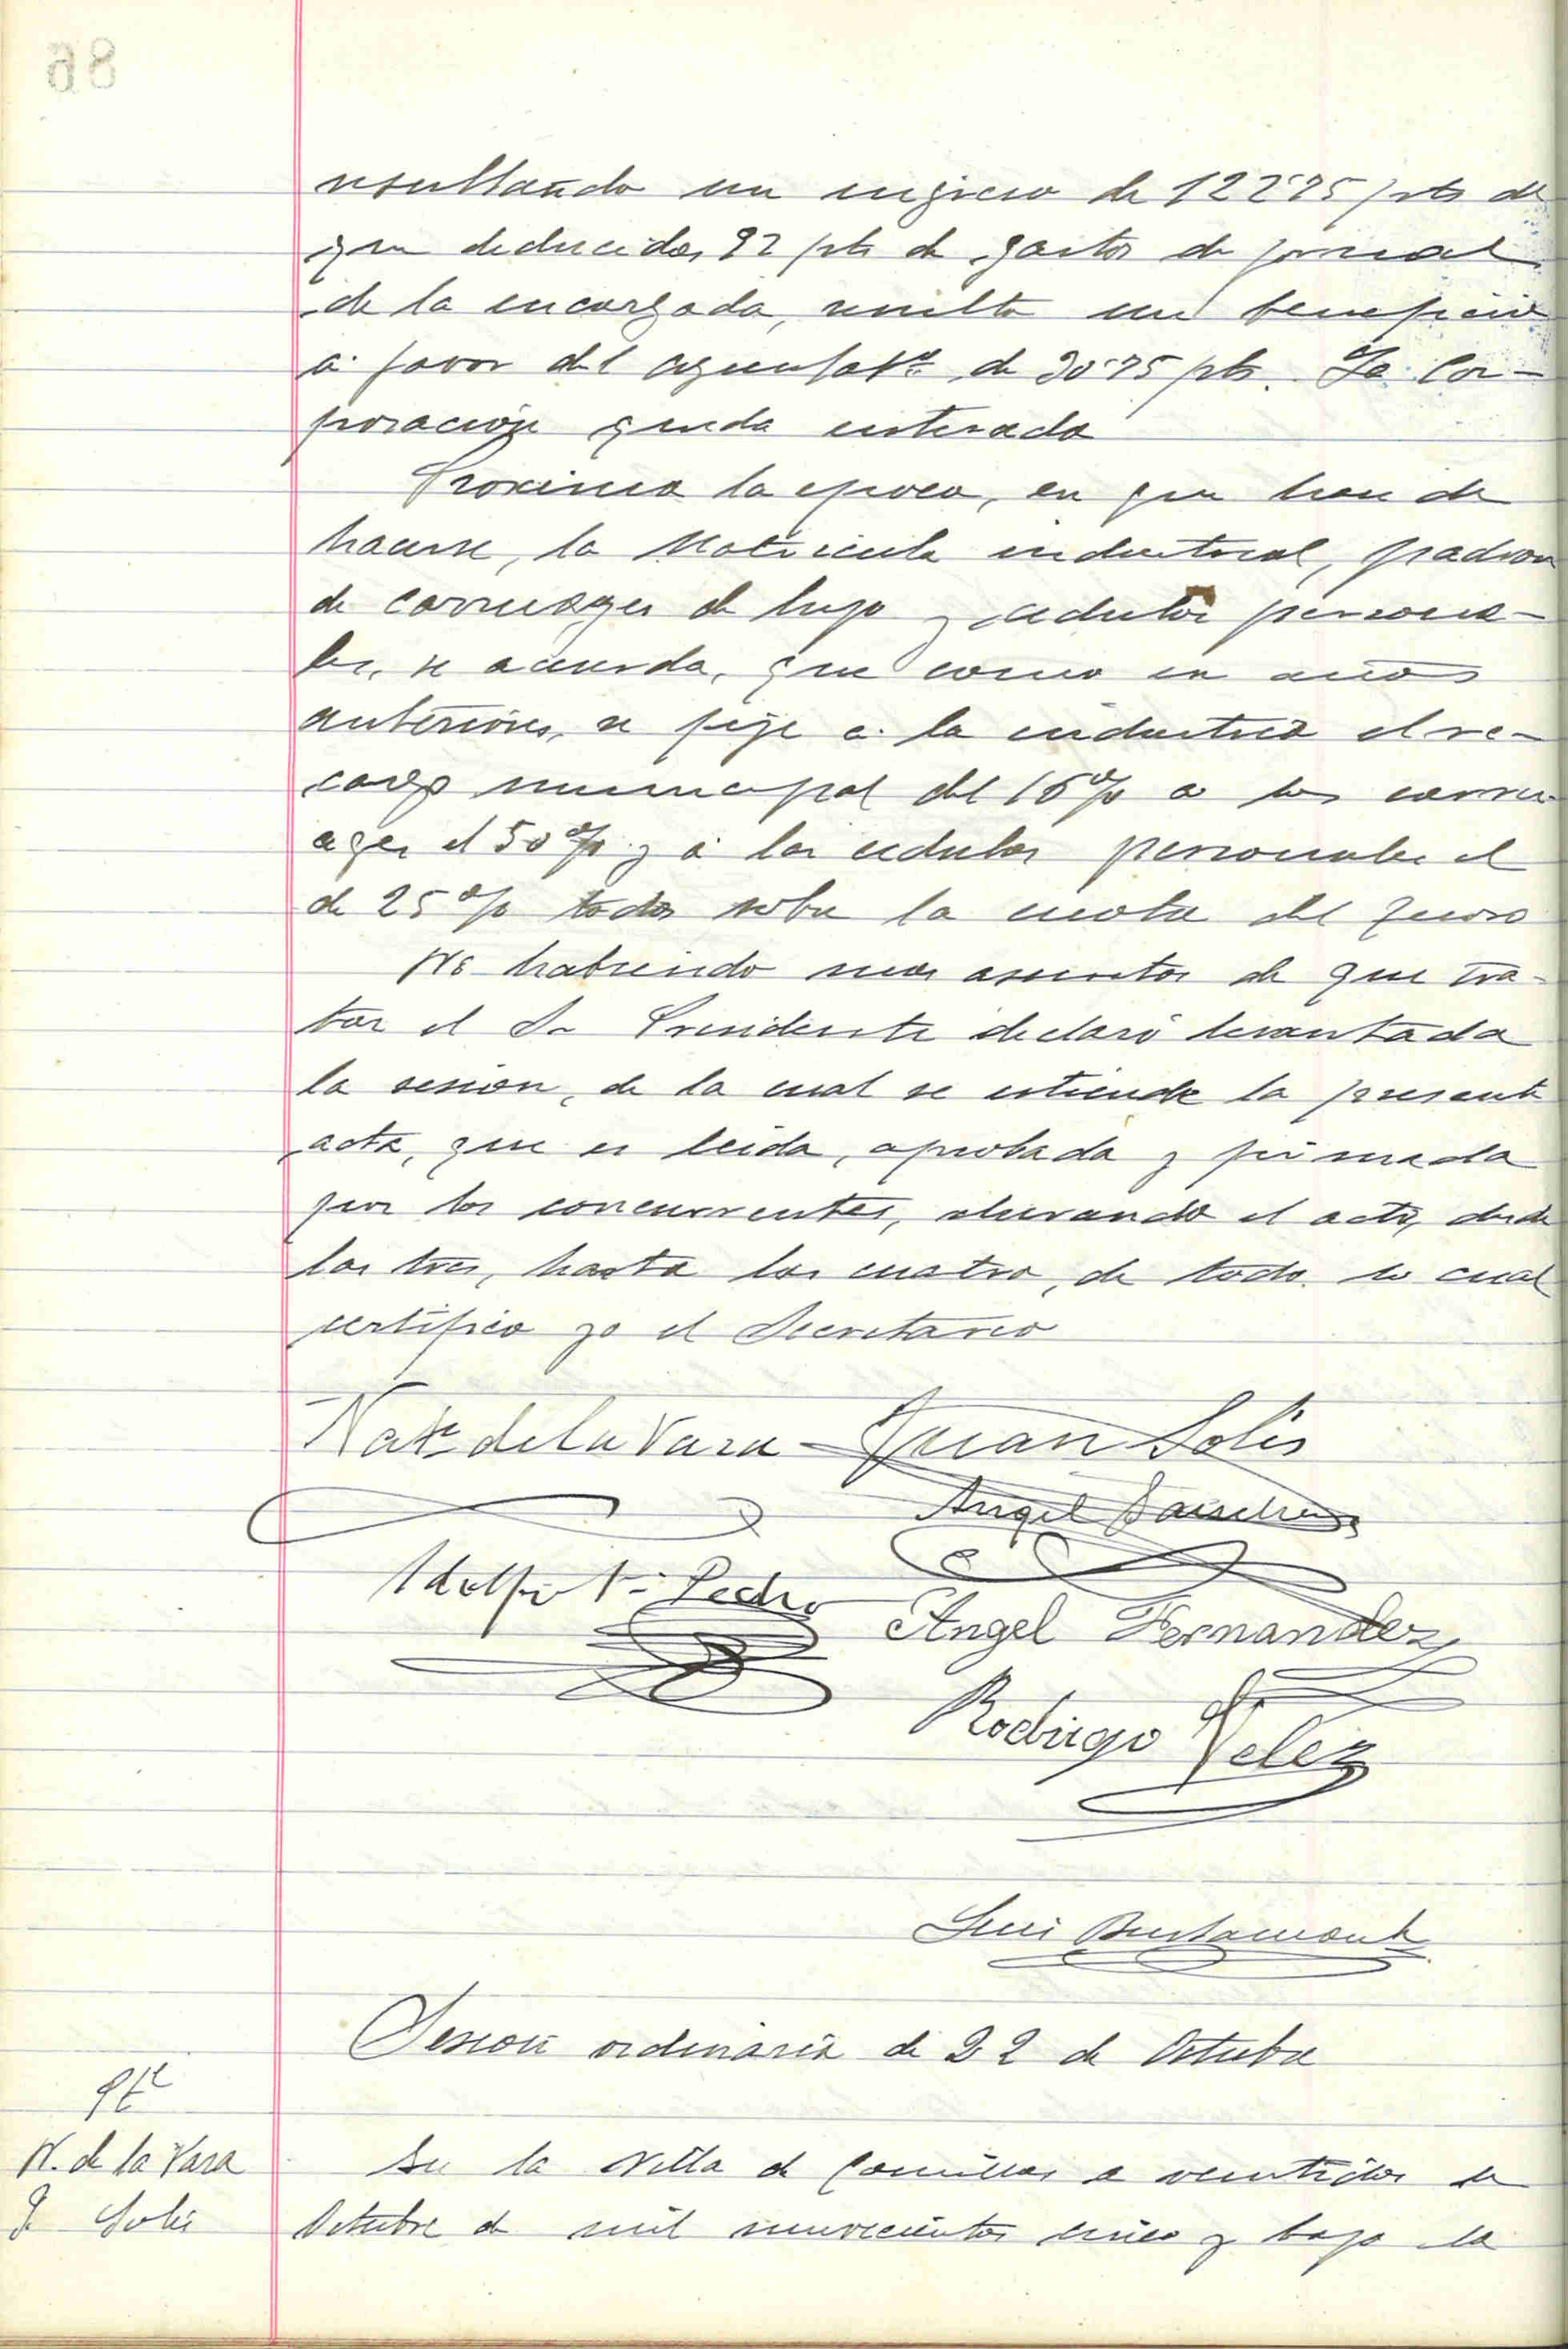 resultando un ingreso de 122'75 pts de
que deducidas 92 pts de gastos de jornal
de la encargada, resulta un beneficio
a favor del ayuntatº de 30'75 pts. La Cor-
poracion queda enterada
Proxima la epoca, en que han de
hacerse, la Matricula industrial, padron
de carruages de lujo y cedulas persona-
les, se acuerda, que como en años
anteriores, se fije a la industria el re-
cargo municipal del 16% a los carru
ages el 50% y á las cedulas personales el
de 25% todos sobre la cuota del Tesoro
No habiendo mas asuntos de que tra-
tar el Sr Presidente declaró levantada
la sesion, de la cual se estiende la presente
acta, que es leida, aprobada y firmada
por los concurrentes, durando el acto, desde
las tres, hasta las cuatro, de todo lo cual
certifico yo el Secretario
Nat. de la Vara - Juan Solis
Angel
Adolfo Pedro
Angel Fernandez
Rodrigo Velez
Luis Bustamante
Sesion ordinaria de 22 de Octubre
Pte
N. de la Vara
J. Solis
En la villa de Comillas a veintidos de
Octubre de mil novecientos cinco y bajo la
86